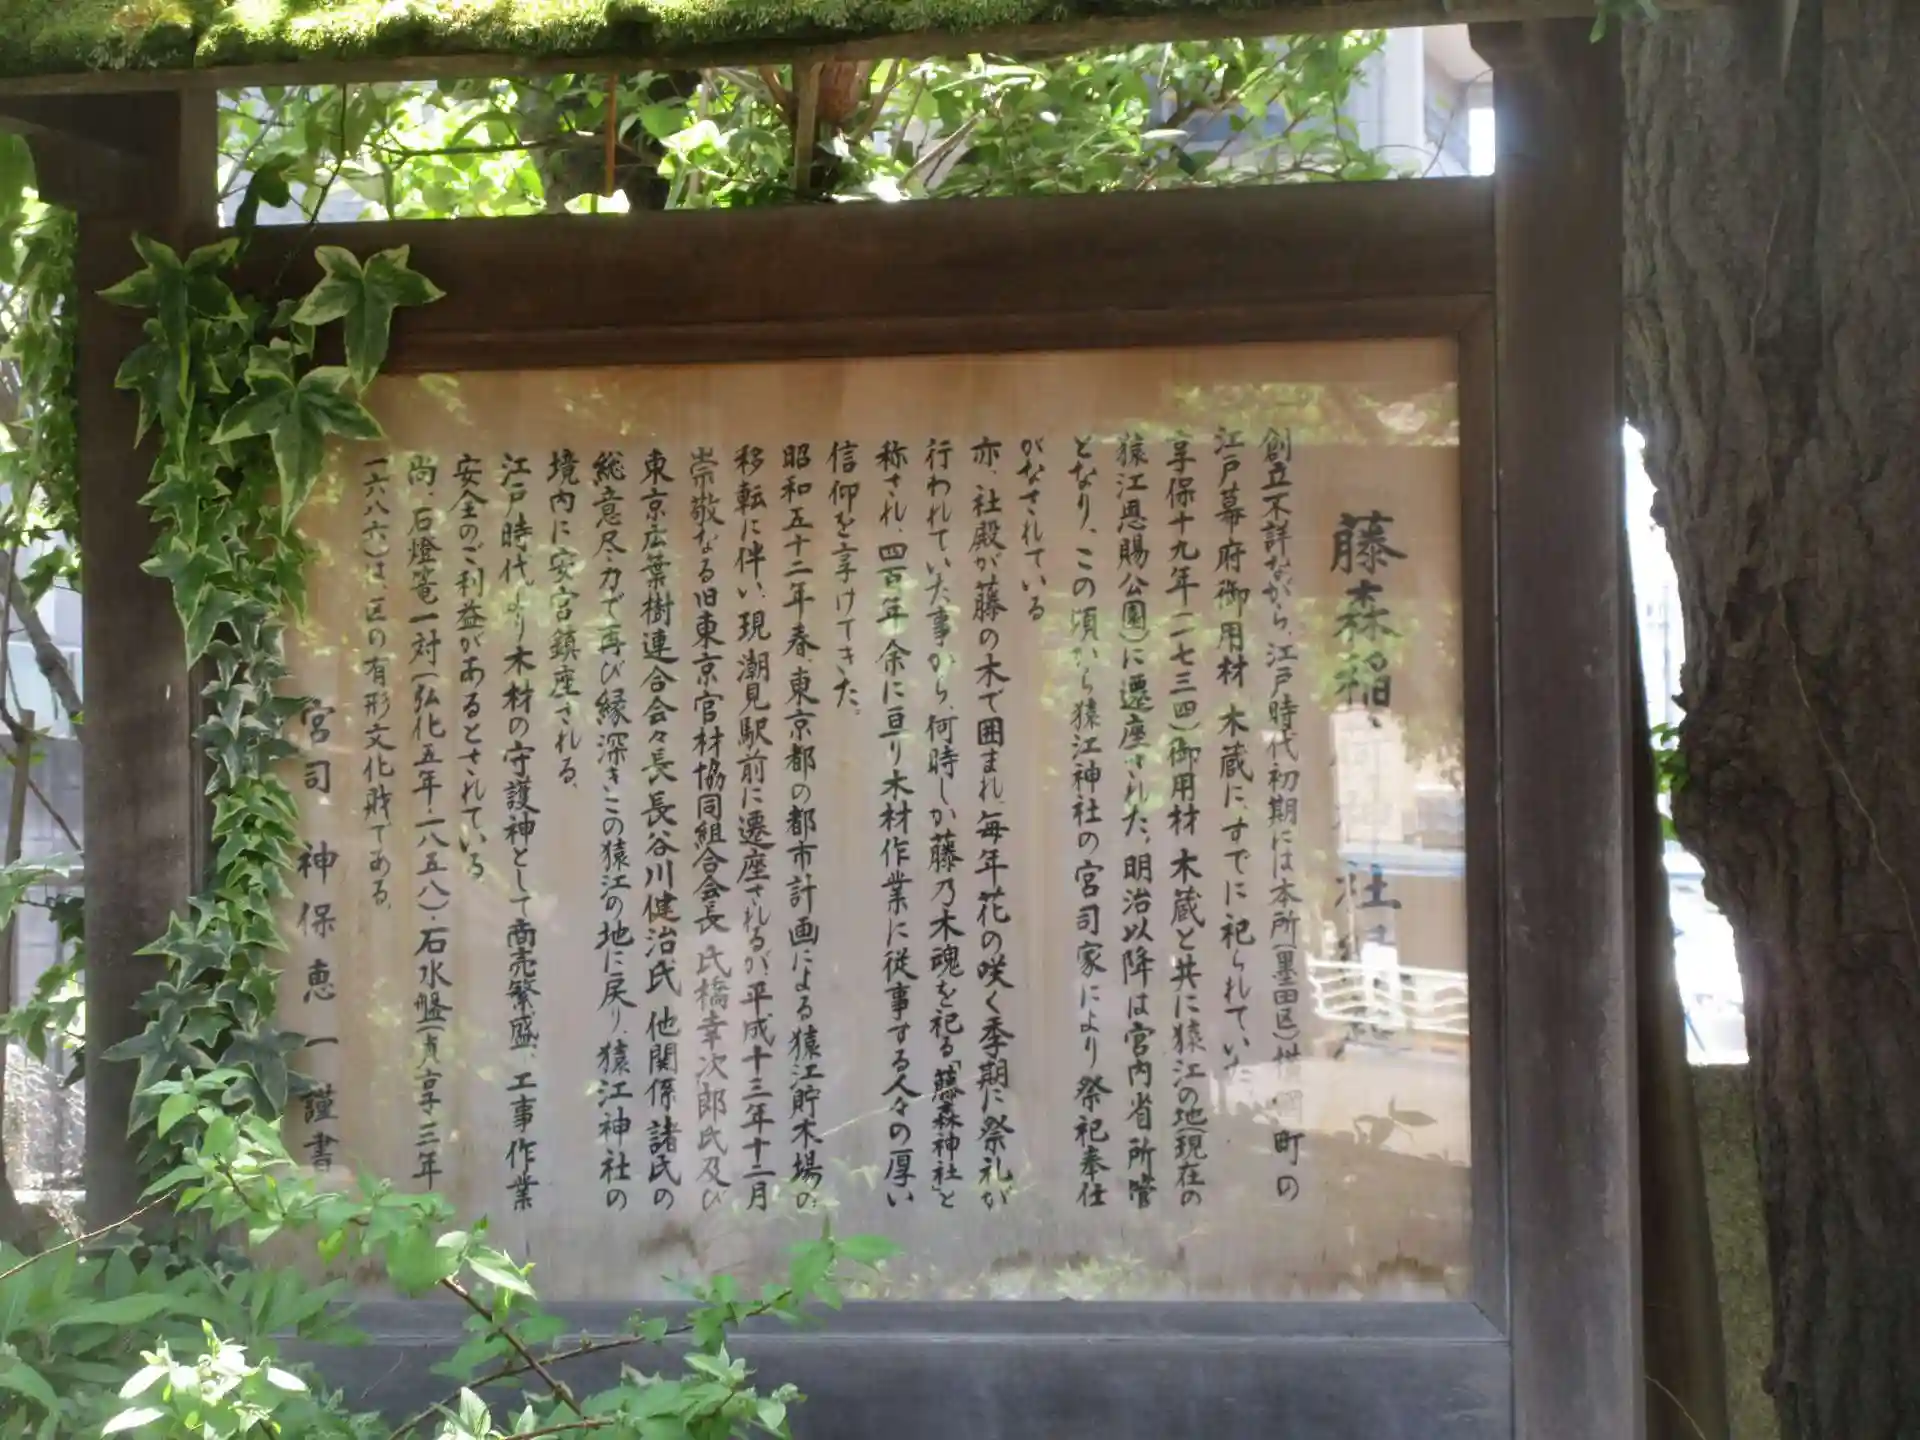 藤森稲 社
創立不詳ながら、江戸時代初期には本所(墨田区) 町の
江戸幕府御用材 木蔵に、すでに祀られていた
享保十九年(一七三四)御用材 木蔵と共に猿江の地(現在の
猿江恩賜公園)に遷座された。明治以降は宮内省所管
となり、この頃から猿江神社の宮司家により祭祀奉仕
がなされている
亦、社殿が藤の木で囲まれ、毎年花の咲く季期に祭礼が
行われていた事から、何時しか藤乃木魂を祀る「藤森神社」と
称され、四百年余に亘り木材作業に従事する人々の厚い
信仰を享けてきた。
昭和五十二年春、東京都の都市計画による猿江貯木場の
移転に伴い、現潮見駅前に遷座されるが、平成十三年十二月
崇敬なる旧東京官材協同組合会長 氏橋幸次郎氏及び
東京広葉樹連合会々長 長谷川健治氏 他関係諸氏の
総意尽力で再び縁深きこの猿江の地に戻り、猿江神社の
境内に安宮鎮座される、
江戸時代より木材の守護神として商売繁盛、工事作業
安全のご利益があるとされている
尚、石燈篭一対(弘化五年・一八五八)・石水盤(貞享三年
一六八六)は、区の有形文化財である、
宮司 神保恵一謹書